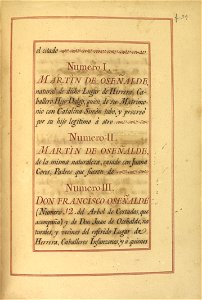 el citado
Numero I.
MARTIN DE OSENALDE,
natural de dicho Lugar de Herrera, Ca-
ballero Hijo Dalgo, quien de su Matrimo-
nio con Catalina Simón tubo, y procreó
por su hijo legitimo á otro
Numero II.
MARTIN DE OSENALDE,
de la misma naturaleza, casado con Juana
Padres que fueron de
Numero III.
DON FRANCISCO OSEÑALDE
(Numero 12 del Arbol de Costados, que
acompaña) y de Don Juan de Oseñalde, na-
turales, y vecinos del referido Lugar de
Herrera, Caballeros Infanzones, y á quienes